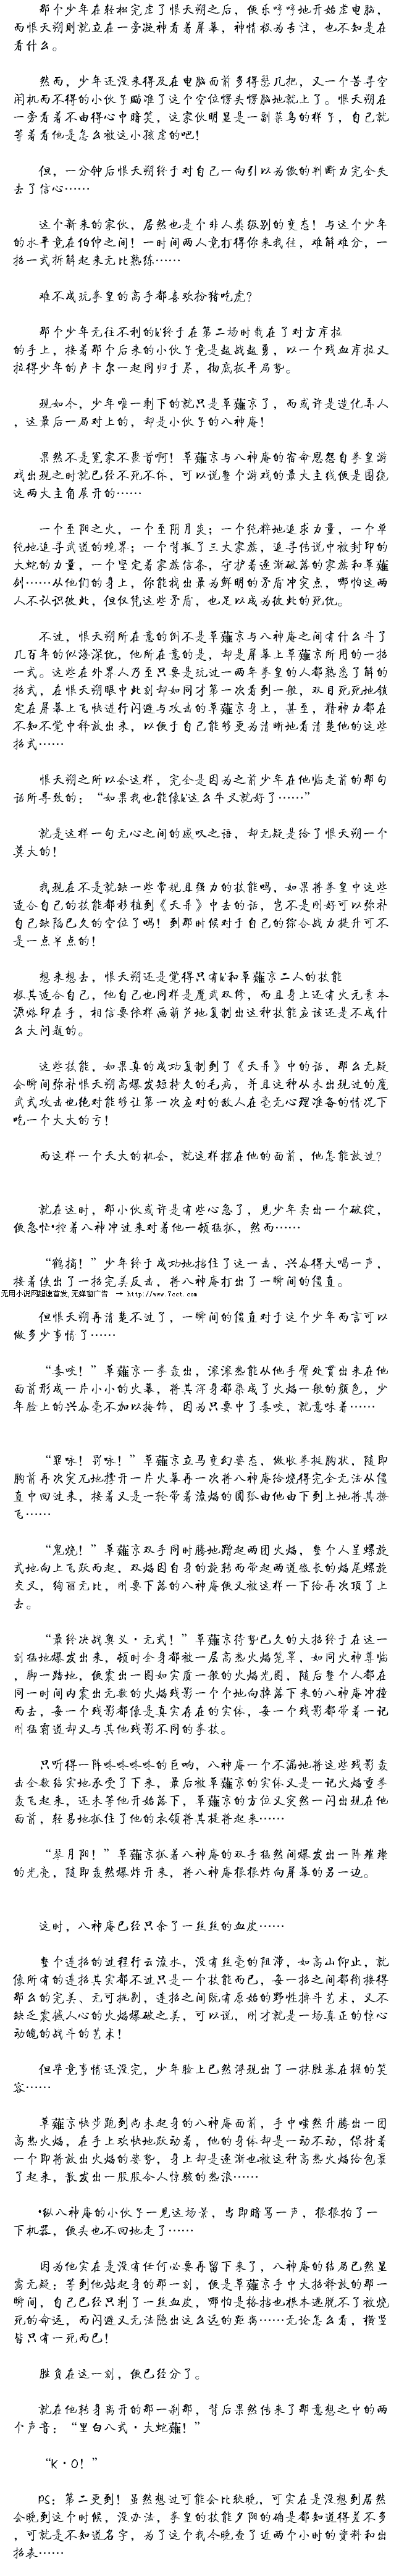 那个少年在轻松完虐了恨天朔之后，便乐呵呵地开始虐电脑，
而恨天朔则就立在一旁凝神看着屏幕，神情极为专注，也不知是在
看什么。
然而，少年还没来得及在电脑面前多得瑟几把，又一个苦寻空
闲机而不得的小伙子瞄准了这个空位愣头愣脑地就上了。恨天朔在
一旁看着不由得心中暗笑，这家伙明显是一副菜鸟的样子，自己就
等着看他是怎么被这小孩虐的吧！
但，一分钟后恨天朔终于对自己一向引以为傲的判断力完全失
去了信心……
这个新来的家伙，居然也是个非人类级别的变态！与这个少年
的水平竟在伯仲之间！一时间两人竟打得你来我往，难解难分，一
招一式拆解起来无比熟练……
难不成玩拳皇的高手都喜欢扮猪吃虎？
那个少年无往不利的k'终于在第二场时栽在了对方库拉
的手上，接着那个后来的小伙子竟是越战越勇，以一个残血库拉又
拉得少年的卢卡尔一起同归于尽，彻底扳平局势。
现如今，少年唯一剩下的就只是草薙京了，而或许是造化弄人
，这最后一局对上的，却是小伙子的八神庵！
果然不是冤家不聚首啊！草薙京与八神庵的宿命恩怨自拳皇游
戏出现之时就已经不死不休，可以说整个游戏的最大主线便是围绕
这两大主角展开的……
一个至阳之火，一个至阴月炎；一个纯粹地追求力量，一个单
纯地追寻武道的境界；一个背叛了三大家族，追寻传说中被封印的
大蛇的力量，一个坚定着家族信条，守护着逐渐破落的家族和草薙
剑……从他们的身上，你能找出最为鲜明的矛盾冲突点，哪怕这两
人不认识彼此，但仅凭这些矛盾，也足以成为彼此的死仇。
不过，恨天朔所在意的倒不是草薙京与八神庵之间有什么斗了
几百年的似海深仇，他所在意的是，却是屏幕上草薙京所用的一招
一式。这些在外界人乃至只要是玩过一两年拳皇的人都熟悉了解的
招式，在恨天朔眼中此刻却如同才第一次看到一般，双目死死地锁
定在屏幕上飞快进行闪避与攻击的草薙京身上，甚至，精神力都在
不知不觉中释放出来，以便于自己能够更为清晰地看清楚他的这些
招式……
恨天朔之所以会这样，完全是因为之前少年在他临走前的那句
话所导致的：“如果我也能像k'这么牛叉就好了……”
就是这样一句无心之间的感叹之语，却无疑是给了恨天朔一个
莫大的！
我现在不是就缺一些常规且强力的技能吗，如果将拳皇中这些
适合自己的技能都移植到《天弃》中去的话，岂不是刚好可以弥补
自己缺陷已久的空位了吗！到那时候对于自己的综合战力提升可不
是一点半点的！
想来想去，恨天朔还是觉得只有k'和草薙京二人的技能
极其适合自己，他自己也同样是魔武双修，而且身上还有火元素本
源烙印在手，相信要依样画葫芦地复制出这种技能应该还是不成什
么大问题的。
这些技能，如果真的成功复制到了《天弃》中的话，那么无疑
会瞬间弥补恨天朔高爆发短持久的毛病，并且这种从未出现过的魔
武式攻击也绝对能够让第一次应对的敌人在毫无心理准备的情况下
吃一个大大的亏！
而这样一个天大的机会，就这样摆在他的面前，他怎能放过？
就在这时，那小伙或许是有些心急了，见少年卖出一个破绽，
便急忙*控着八神冲过来对着他一顿猛抓，然而……
“鹤摘！”少年终于成功地挡住了这一击，兴奋得大喝一声，
接着使出了一招完美反击，将八神庵打出了一瞬间的僵直。
无用小说网超速首发，无弹窗广告 → http://www.7cct.com
但恨天朔再清楚不过了，一瞬间的僵直对于这个少年而言可以
做多少事情了……
“毒咬！”草薙京一拳轰出，滚滚热能从他手臂处贯出来在他
面前形成一片小小的火幕，将其浑身都染成了火焰一般的颜色，少
年脸上的兴奋毫不加以掩饰，因为只要中了毒咬，就意味着……
“罪咏！罚咏！”草薙京立马变幻姿态，做收拳挺胸状，随即
胸前再次突兀地撑开一片火幕再一次将八神庵给烧得完全无法从僵
直中回过来，接着又是一轮带着流焰的圆弧由他由下到上地将其撩
飞……
“鬼烧！”草薙京双手同时腾地蹭起两团火焰，整个人呈螺旋
式地向上飞跃而起，双焰因自身的旋转而带起两道悠长的焰尾螺旋
交叉，绚丽无比，刚要下落的八神庵便又被这样一下给再次顶了上
去。
“最终决战奥义·无式！”草薙京待势已久的大招终于在这一
刻猛地爆发出来，顿时全身都被一层高热火焰笼罩，如同火神尊临
，脚一踏地，便震出一圈如实质一般的火焰光圈，随后整个人都在
同一时间内震出无数的火焰残影一个个地向掉落下来的八神庵冲撞
而去，每一个残影都像是真实存在的实体，每一个残影都带着一记
刚猛霸道却又与其他残影不同的拳技。
只听得一阵咚咚咚咚的巨响，八神庵一个不漏地将这些残影轰
击全数结实地承受了下来，最后被草薙京的实体又是一记火焰重拳
轰飞起来，还未等他开始落下，草薙京的方位又突然一闪出现在他
面前，轻易地抓住了他的衣领将其提将起来……
“琴月阳！”草薙京抓着八神庵的双手猛然间爆发出一阵璀璨
的光亮，随即轰然爆炸开来，将八神庵狠狠炸向屏幕的另一边。
这时，八神庵已经只余了一丝丝的血皮……
整个连招的过程行云流水，没有丝毫的阻滞，如高山仰止，就
像所有的连招其实都不过只是一个技能而已，每一招之间都衔接得
那么的完美、无可挑剔，连招之间既有原始的野性搏斗艺术，又不
缺乏震撼人心的火焰爆破之美，可以说，刚才就是一场真正的惊心
动魄的战斗的艺术！
但毕竟事情还没完，少年脸上已然浮现出了一抹胜券在握的笑
容……
草薙京快步跑到尚未起身的八神庵面前，手中嗤然升腾出一团
高热火焰，在手上欢快地跃动着，他的身体却是一动不动，保持着
一个即将放出火焰的姿势，身上却是逐渐也被这种高热火焰给包裹
了起来，散发出一股股令人惊骇的热浪……
*纵八神庵的小伙子一见这场景，当即暗骂一声，狠狠拍了一
下机器，便头也不回地走了……
因为他实在是没有任何必要再留下来了，八神庵的结局已然显
露无疑：等到他站起身的那一刻，便是草薙京手中大招释放的那一
瞬间，自己已经只剩了一丝血皮，哪怕是格挡也根本逃脱不了被烧
死的命运，而闪避又无法隐出这么远的距离……无论怎么看，横竖
皆只有一死而已！
胜负在这一刻，便已经分了。
就在他转身离开的那一刹那，背后果然传来了那意想之中的两
个声音：“里白八式·大蛇薙！”
“K·O！”
PS：第二更到！虽然想过可能会比较晚，可实在是没想到居然
会晚到这个时候，没办法，拳皇的技能夕阳的确是都知道得差不多
，可就是不知道名字，为了这个我今晚查了近两个小时的资料和出
招表……